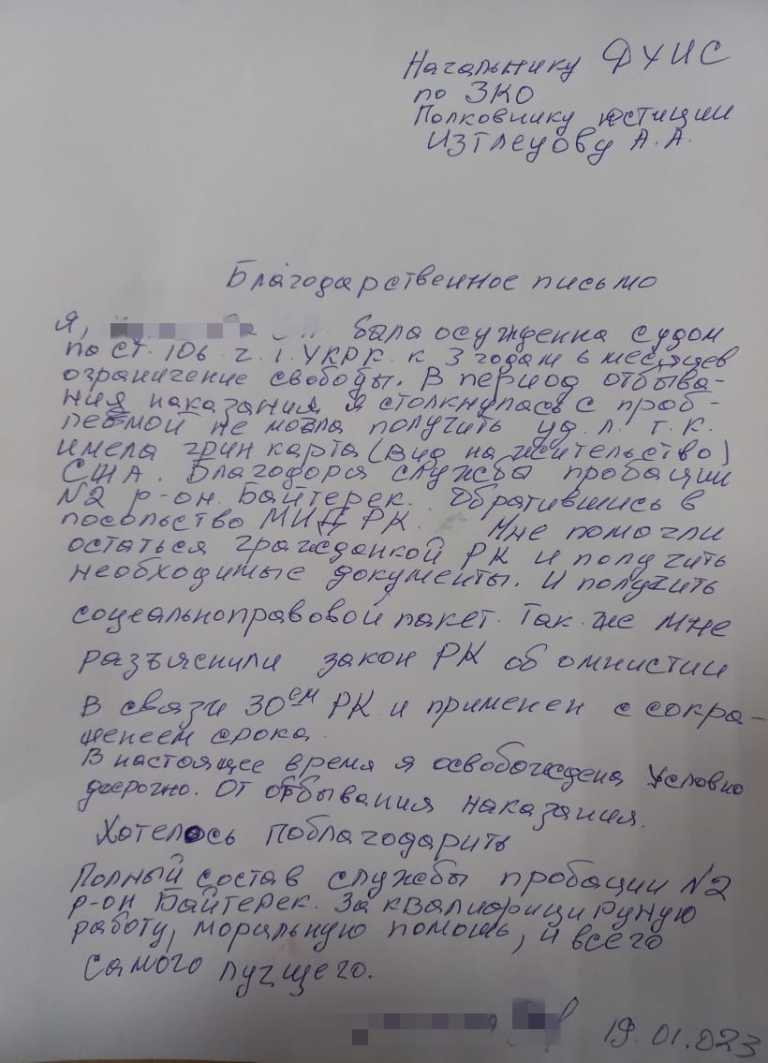 Начальнику ДУИС
по ЗКО
Полковнику юстиции
Изтлеуову А.А.
Благодарственное письмо
Я, была осужденна судом
по ст. 106 ч. 1. УКРК. к 3 годам 6 месяцев
ограничение свободы. В период отбыва-
ния наказания я столкнулась с проб-
лемой не могла получить уд. л. т.к.
имела грин карта (вид на жительство)
США. Благодоря служба пробации
№2 р-он. Байтерек. Обратившись в
посольство МИД РК. Мне помогли
остаться гражданкой РК и получить
необходимые документы. И получить
социальноправовой пакет. Так же мне
разъяснили закон РК об омнистии
В связи 30ем РК и применен с сокра-
щенеем срока.
В настоящее время я освобождена Условно
досрочно. От отбывания наказания.
Хотелось поблагодарить
Полный состав службы пробации №2
р-он Байтерек. За квалифицируную
работу, моральную помошь, и всего
самого лучщего.
19.01.023